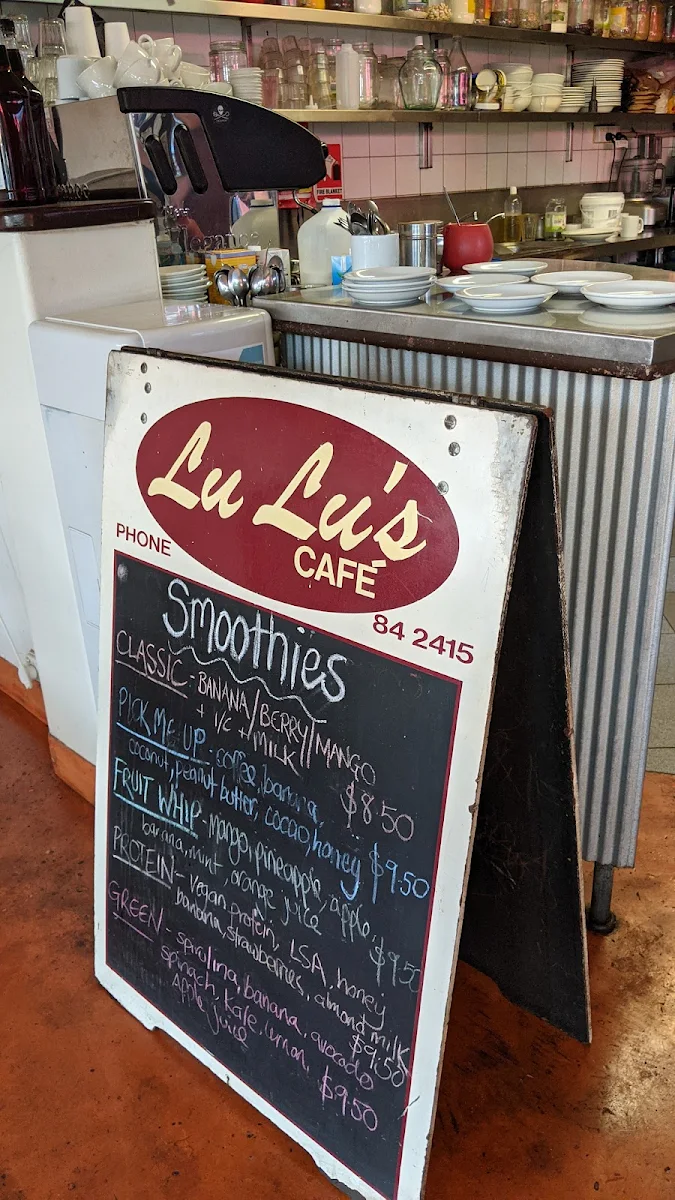 Lu Lu's
CAFÉ
PHONE
84 2415
Smoothies
CLASSIC - BANANA/BERRY/MANGO
+ I/C + MILK
$8.50
PICK ME UP - coffee, banana,
coconut, peanut butter, cocao, honey $9.50
FRUIT WHIP - mango, pineapple, apple,
banana, mint, orange juice $9.50
PROTEIN - vegan protein, LSA, honey
banana, strawberries, almond milk
$9.50
GREEN - spirulina, banana, avocado
spinach, kale, lemon,
apple juice $9.50
FIRE BLANKET